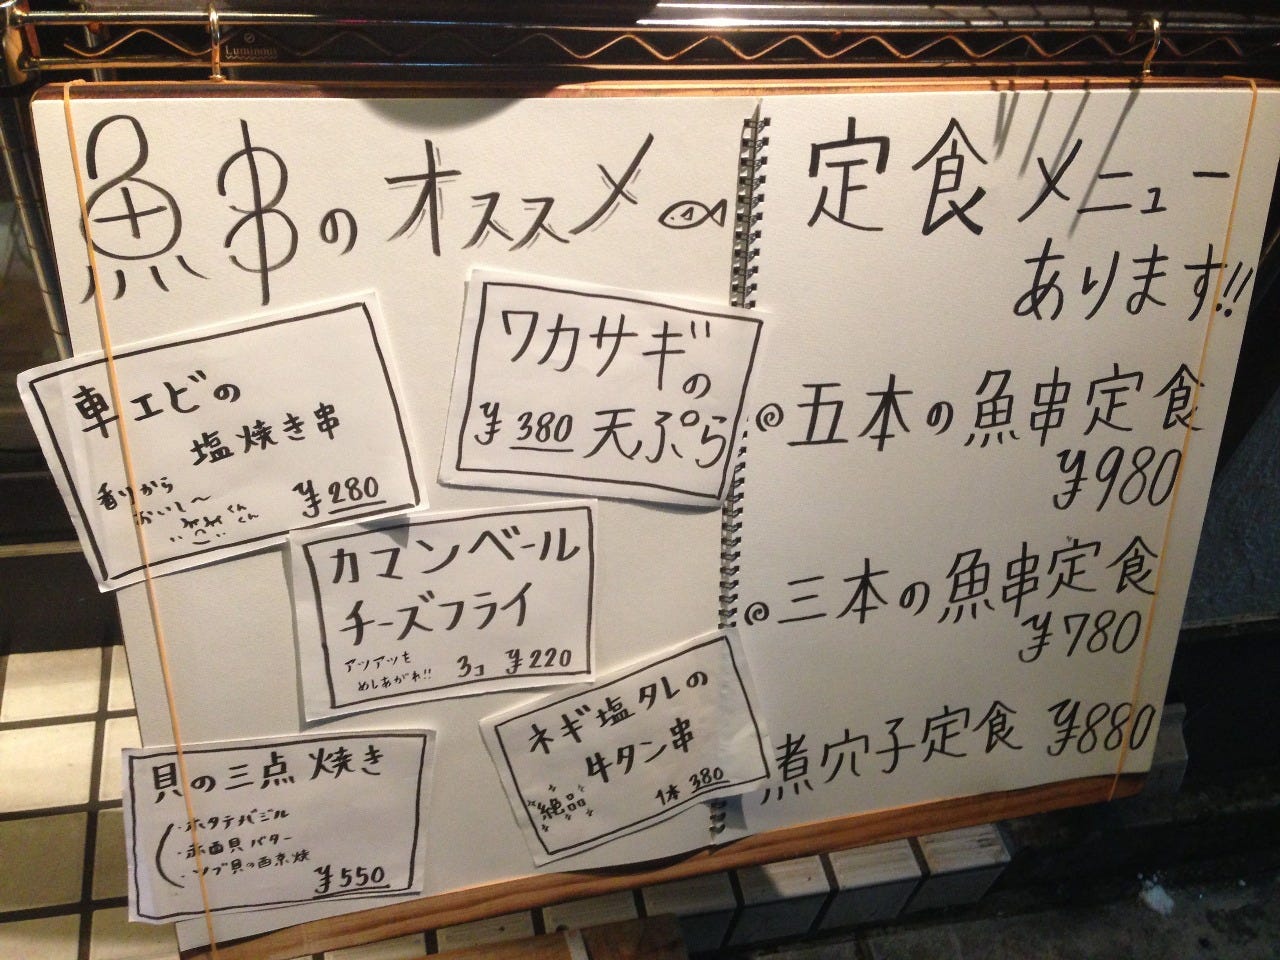 Luminous
魚串のオススメ
車エビの
塩焼き串
香りから
おいし〜
くん
くん
¥280
ワカサギの
¥380 天ぷら
カマンベール
チーズフライ
アツアツを
めしあがれ!!
3コ ¥220
貝の三点焼き
・ホタテバジル
・赤西貝バター
・ツブ貝の西京焼
¥550
ネギ塩タレの
牛タン串
絶品
1本 380
定食メニュー
あります!!
五本の魚串定食
¥980
三本の魚串定食
¥780
煮穴子定食 ¥880